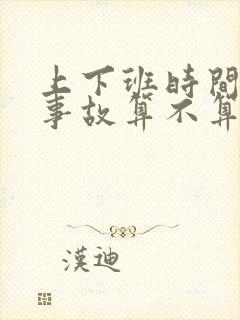 上下班時間
事故算不算
漢迪